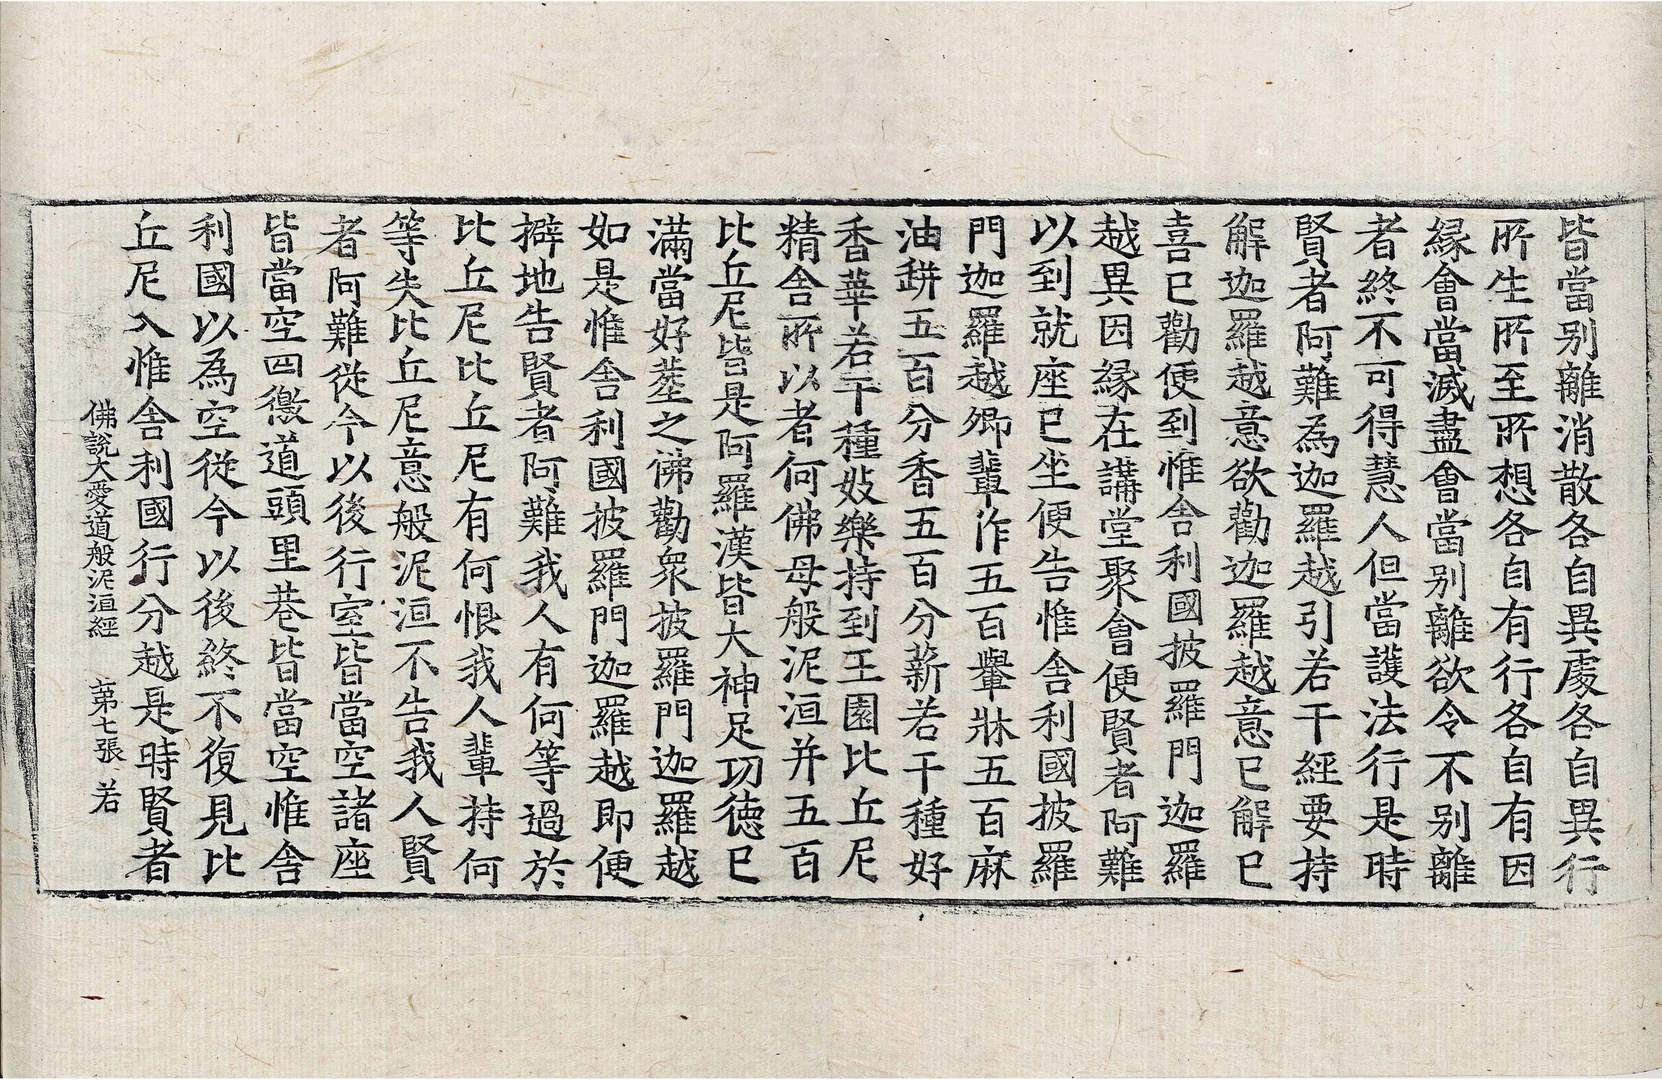 皆當别離消散各自異處各自異行
所生所至所想各自有行各自有因
緣會當滅盡會當别離欲令不别離
者終不可得慧人但當護法行是時
賢者阿難為迦羅越引若干經要持
解迦羅越意欲勸迦羅越意已解已
喜已勸便到惟舍利國披羅門迦羅
越異因緣在講堂聚會便賢者阿難
以到就座已坐便告惟舍利國披羅
門迦羅越卿輩作五百轝牀五百麻
油缾五百分香五百分薪若干種好
香華若干種妓樂持到王園比丘尼
精舍所以者何佛母般泥洹并五百
比丘尼皆是阿羅漢皆大神足功德已
滿當好葬之佛勸衆披羅門迦羅越
如是惟舍利國披羅門迦羅越即便
擗地告賢者阿難我人有何等過於
比丘尼比丘尼有何恨我人輩持何
等失比丘尼意般泥洹不告我人賢
者阿難從今以後行室皆當空諸座
皆當空四徼道頭里巷皆當空惟舍
利國以為空從今以後終不復見比
丘尼入惟舍利國行分越是時賢者
佛說大愛道般泥洹經　第七張　若